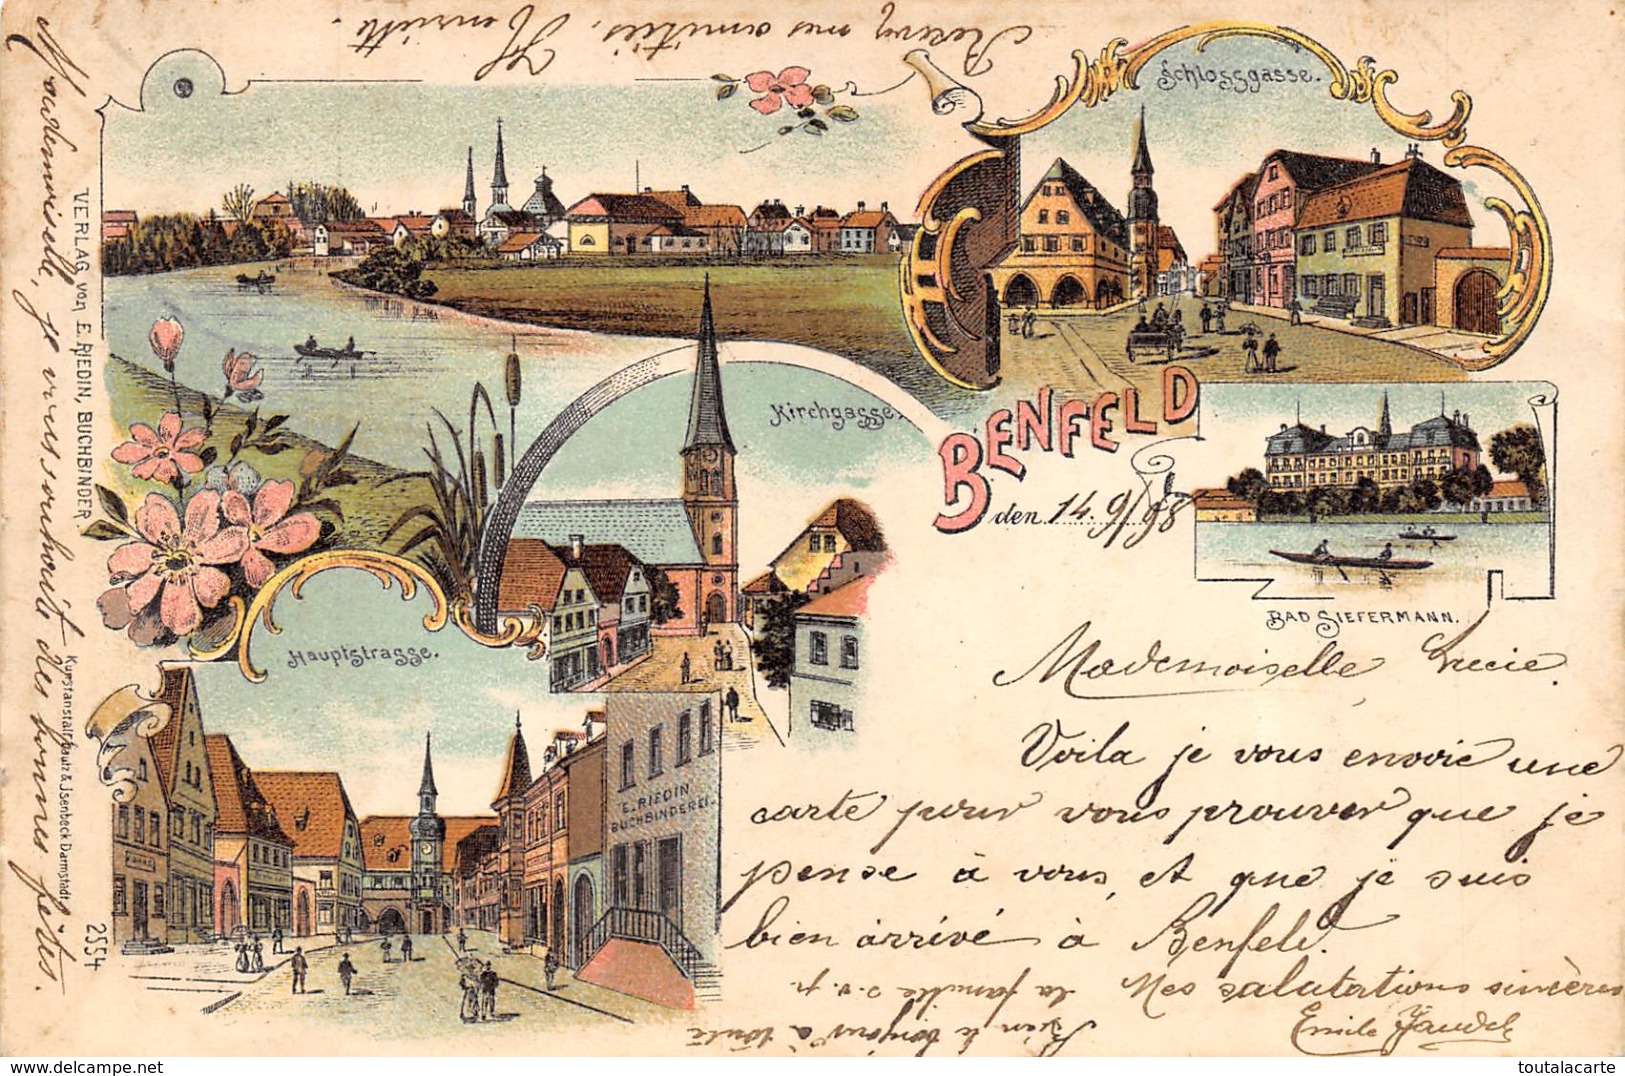 Recevez mes amitiés, Henriette.
Schlossgasse.
Kirchgasse.
BENFELD
den 14. 9/98
BAD SIEFERMANN.
Hauptstrasse.
E. RIEDIN
BUCHBINDEREI.
Mademoiselle Lucie.
Voila je vous envoie une
carte pour vous prouver que je
pense à vous, et que je suis
bien arrivé à Benfeld.
Mes salutations sincères
Emile
Bien le bonjour à toute
la famille s.v.p.
Mademoiselle, je vous souhaite des bonnes fêtes.
VERLAG von E. RIEDIN, BUCHBINDER.
Kunstanstalt Lautz & Isenbeck Darmstadt.
2554
toutalacarte